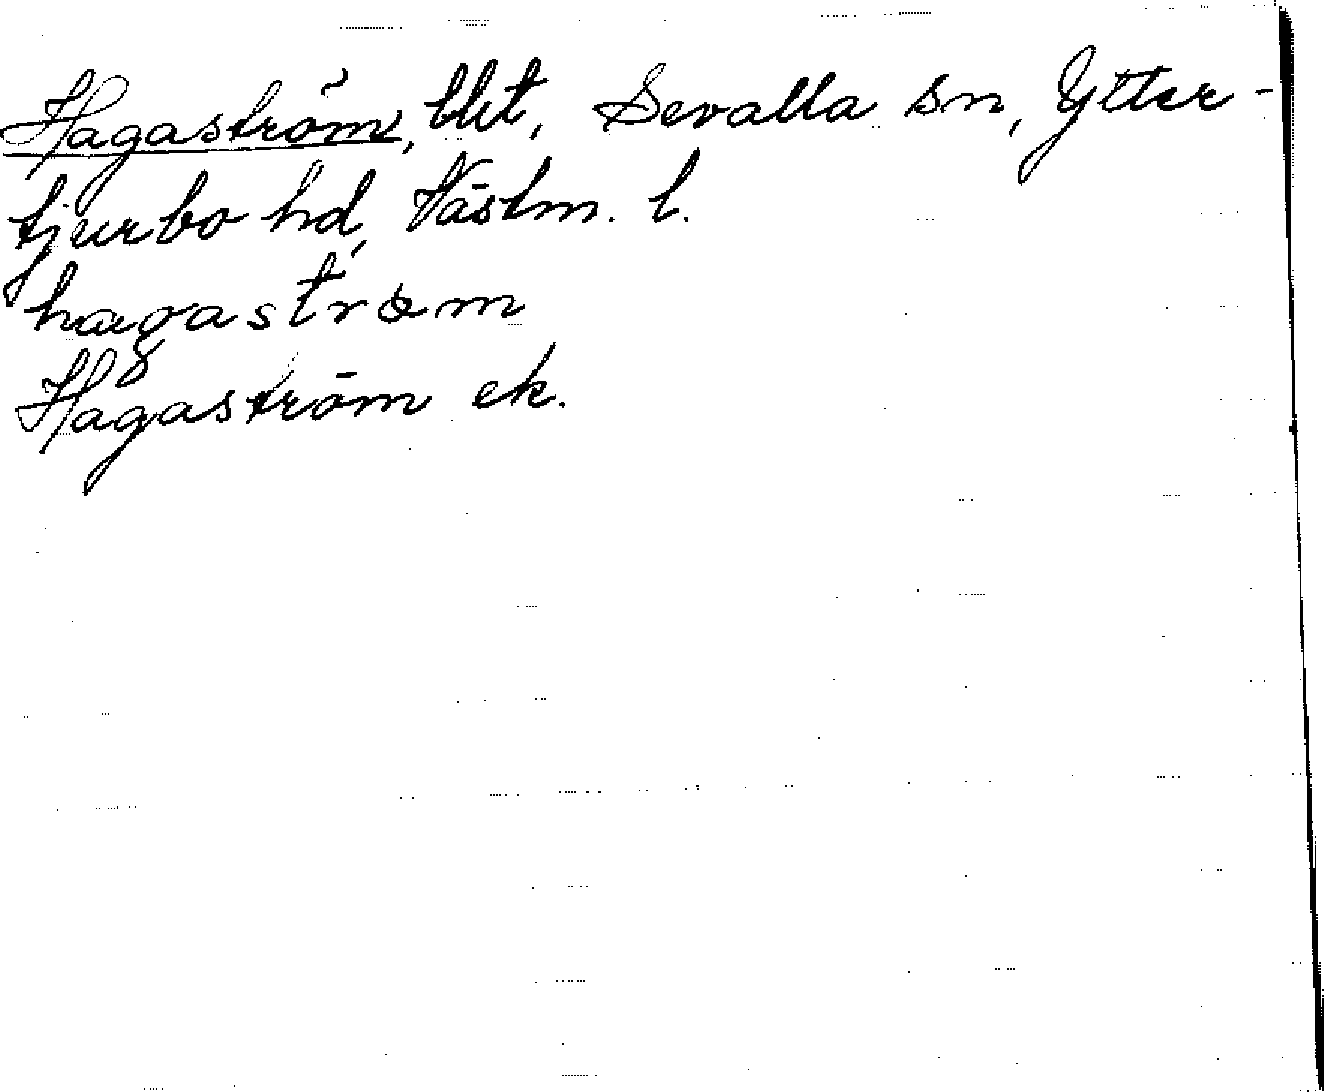 Hagaström, lht, Sevalla sn, Ytter-
tjurbo hd, Västm. l.
hagastrøm
Hagaström ek.